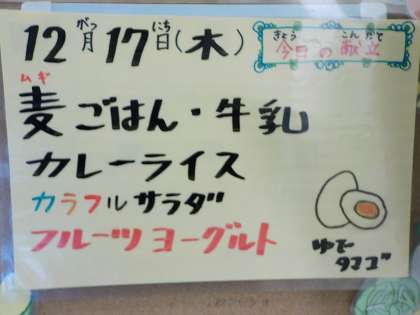 12月17日(木)
がつ にち
今日の献立
きょう こんだて
麦ごはん・牛乳
ムギ
カレーライス
カラフルサラダ
フルーツヨーグルト
ゆで
タマゴ